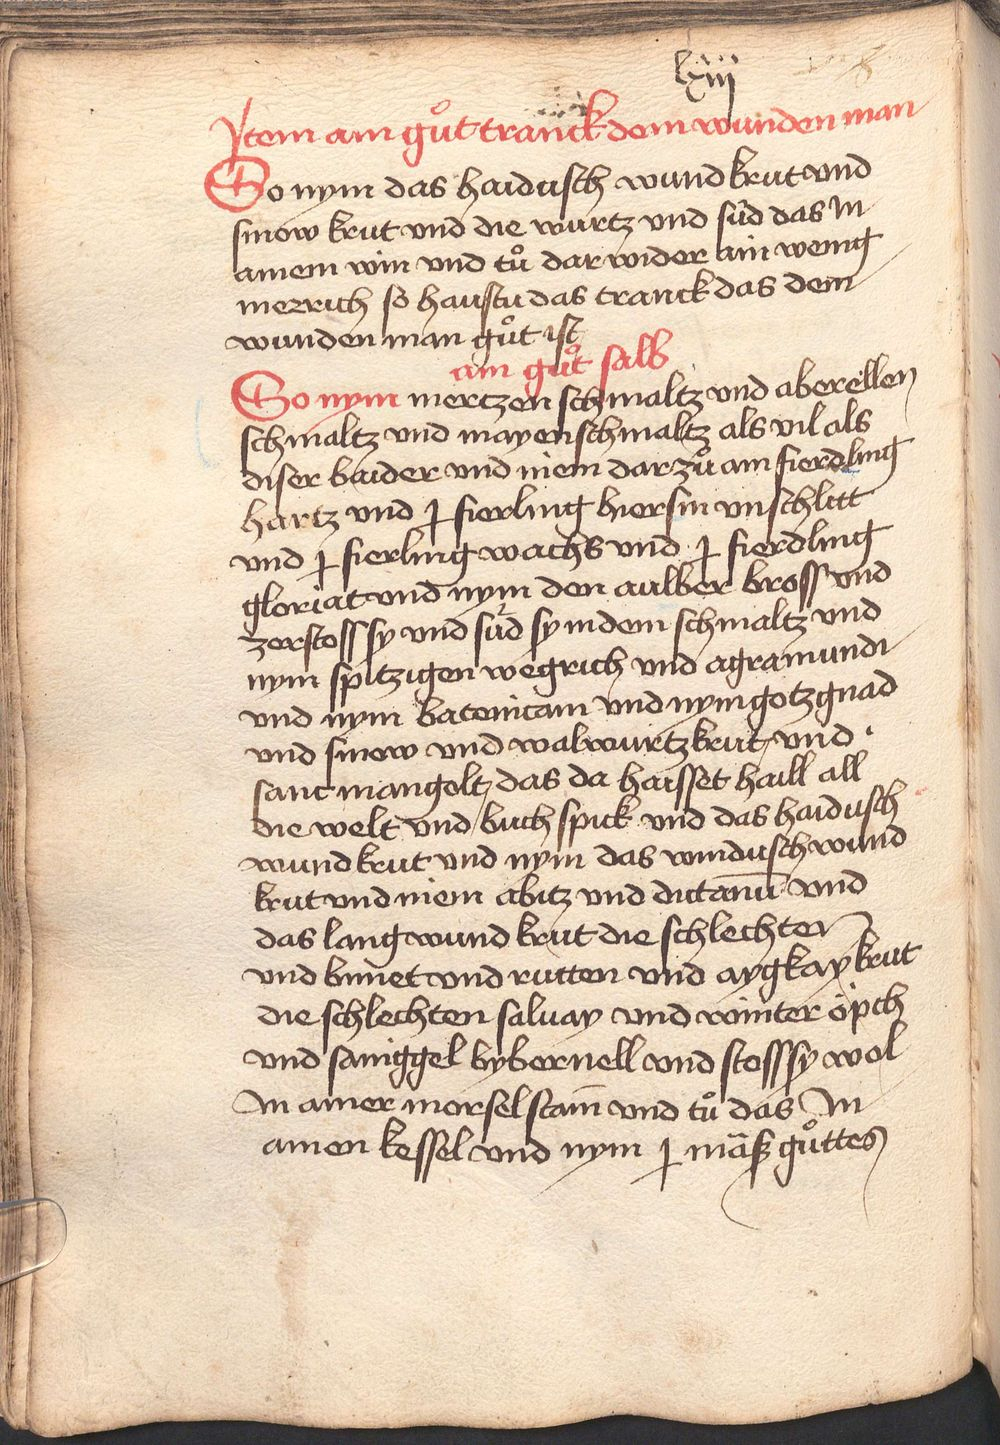 lxiii
Item ain guͦt tranck dem wunden man
So nym das haidusch wundkrut vnd
sinow krut vnd die wurtz vnd süd das In
ainem win vnd tuͦ darwider ain wenig
merrich so haustu das tranck das dem
wunden man guͦt ist
ain guͦt salb
So nym mertzen schmaltz vnd aberellen
schmaltz vnd mayenschmaltz als vil als
diser baider vnd niem darzuͦ ain fierdling
hartz vnd j fierling hiersin vnschlitt
vnd j fierling wachs vnd j fierdling
gloriat vnd nym den aulber bross vnd
zerstoss sy vnd süd sy indem schmaltz vnd
nym spitzigen wegrich vnd agramundi
vnd nym batonicam vnd nym gotzgnad
vnd sinow vnd walwurtzkrut vnd
sanc mangolt das da haisset haill all
die welt vnd buchspick vnd das haidusch
wundkrut vnd nym das windusch wund
krut vnd niem abitz vnd dictanū vnd
das lang wundkrut die schlechten
vnd binet vnd rutten vnd aygkaykrut
die schlechten saluay vnd winter öpch
vnd saniggel bybernell vnd stoss sy wol
In ainer morselstain vnd tuͦ das In
ainen kessel vnd nym j mäß guͦttes